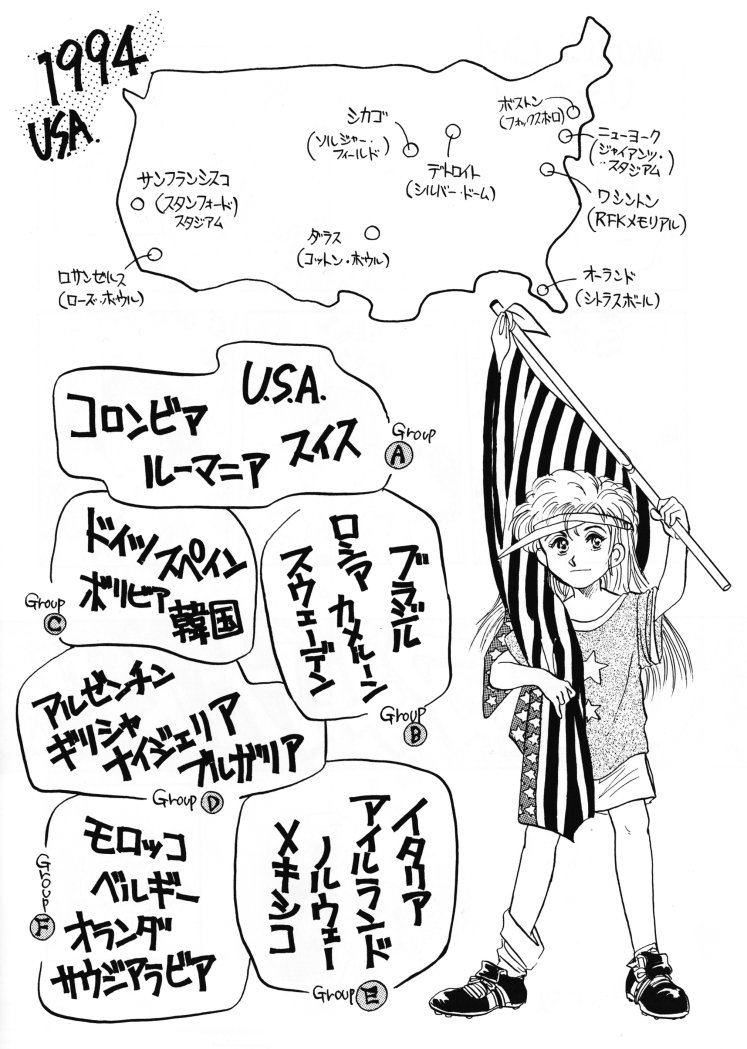 1994
U.S.A.
ボストン
(フォックスボロ)
シカゴ
(ソルジャー・
フィールド)
ニューヨーク
(ジャイアンツ・
スタジアム)
デトロイト
(シルバー・ドーム)
サンフランシスコ
(スタンフォード)
スタジアム
ワシントン
(RFKメモリアル)
ダラス
(コットン・ボウル)
ロサンゼルス
(ローズ・ボウル)
オーランド
(シトラスボール)
U.S.A.
コロンビア
スイス
ルーマニア
Group
A
ドイツ
スペイン
ボリビア
韓国
Group
C
ブラジル
ロシア カメルーン
スウェーデン
Group
B
アルゼンチン
ギリシャ
ナイジェリア
ブルガリア
Group D
モロッコ
ベルギー
オランダ
サウジアラビア
Group
F
イタリア
アイルランド
ノルウェー
メキシコ
Group E